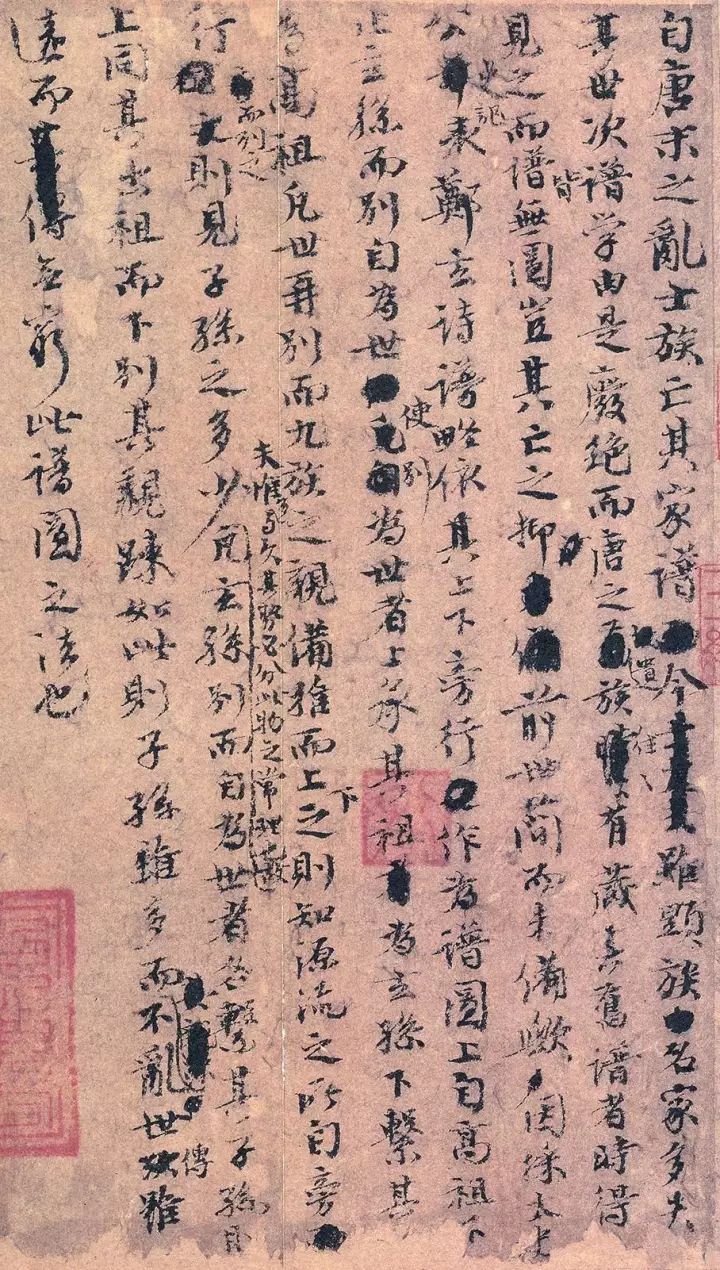 自唐末之亂士族亡其家譜今雖顯族名家多失
其世次譜学由是廢絶而唐之遺族往〻有藏其舊譜者時得
見之而譜皆無圖豈其亡之抑前世簡而未備歟因採太史
公史記表鄭玄詩譜略依其上下旁行作為譜圖上自高祖下
止玄孫而別自為世使別為世者上承其祖為玄孫下繫其
為高祖凡世再別而九族之親備推而上下之則知源流之所自旁
行而列之則見子孫之多少
夫惟多与久其勢必分此物之常理也
凡玄孫別而自為世者各繫其子孫
上同其出祖而下別其親踈如此則子孫雖多而不亂世傳雖
遠而無窮此譜圖之法也